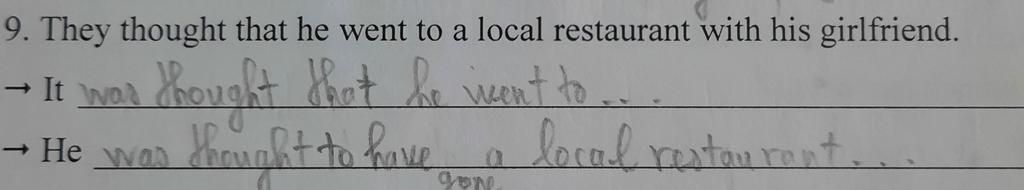 9. They thought that he went to a local restaurant with his girlfriend.
→ It was thought that he went to ...
→ He was thought to have gone a local restaurant....